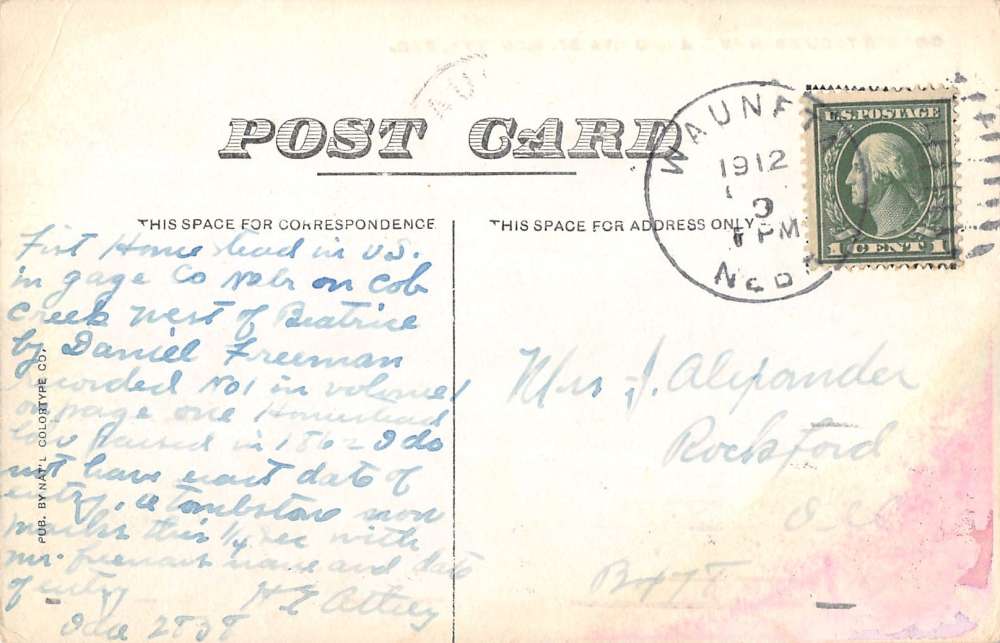 POST CARD
WAUNETA
1912
3
1 PM
NEBR
U.S. POSTAGE
1 CENT 1
THIS SPACE FOR CORRESPONDENCE
THIS SPACE FOR ADDRESS ONLY
First Home stead in U.S.
in gage Co Nebr on Cob
Creek West of Beatrice
by Daniel Freeman
recorded No 1 in volume 1
on page one Homestead
law passed in 1862 I do
not have exact date of
entry. a tombstone now
marks this 1/4 sec with
mr. freemans name and date
of entry
H E
2838
Mrs J. Alexander
Rockford
Ills
Bx 78
PUB. BY NAT'L COLORTYPE CO.